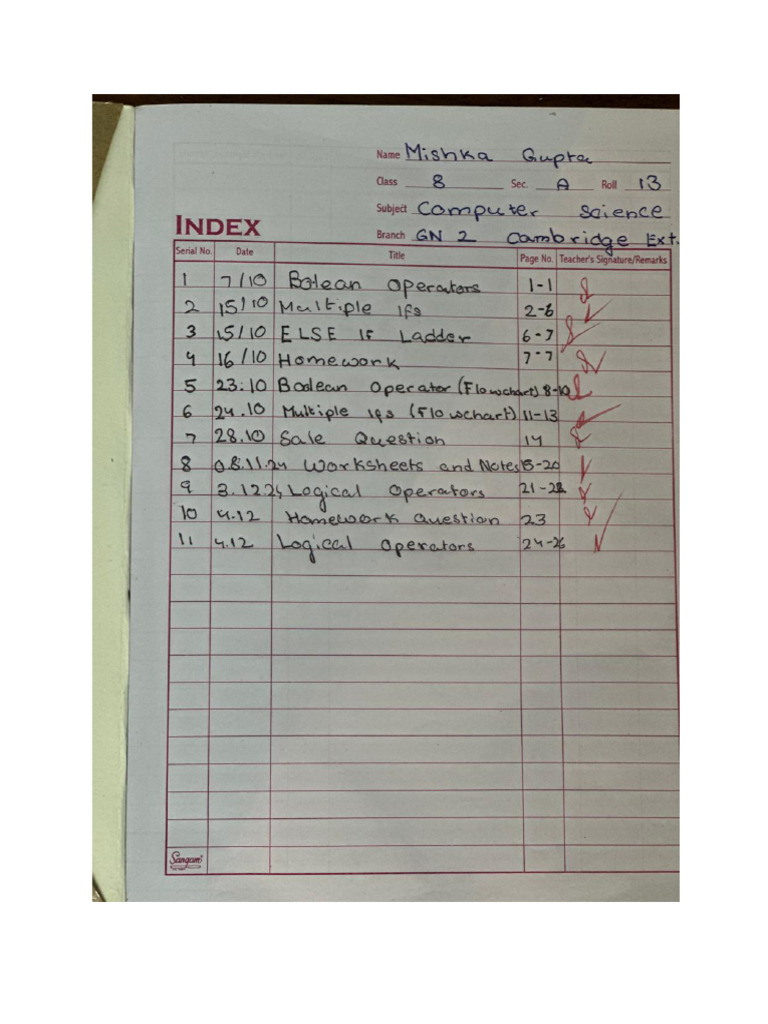 Name Mishka Gupta
Class 8 Sec. A Roll 13
Subject Computer Science
INDEX
Branch GN 2 Cambridge Ext.
Serial No. Date Title Page No. Teacher's Signature/Remarks
1 7/10 Bolean Operators 1-1
2 15/10 Multiple Ifs 2-6
3 15/10 ELSE If Ladder 6-7
4 16/10 Homework 7-7
5 23.10 Boolean Operator (Flowchart) 8-10
6 24.10 Multiple Ifs (Flowchart) 11-13
7 28.10 Sale Question 14
8 08.11.24 Worksheets and Notes 15-20
9 3.12.24 Logical Operators 21-22
10 4.12 Homework Question 23
11 4.12 Logical Operators 24-26
Sangam